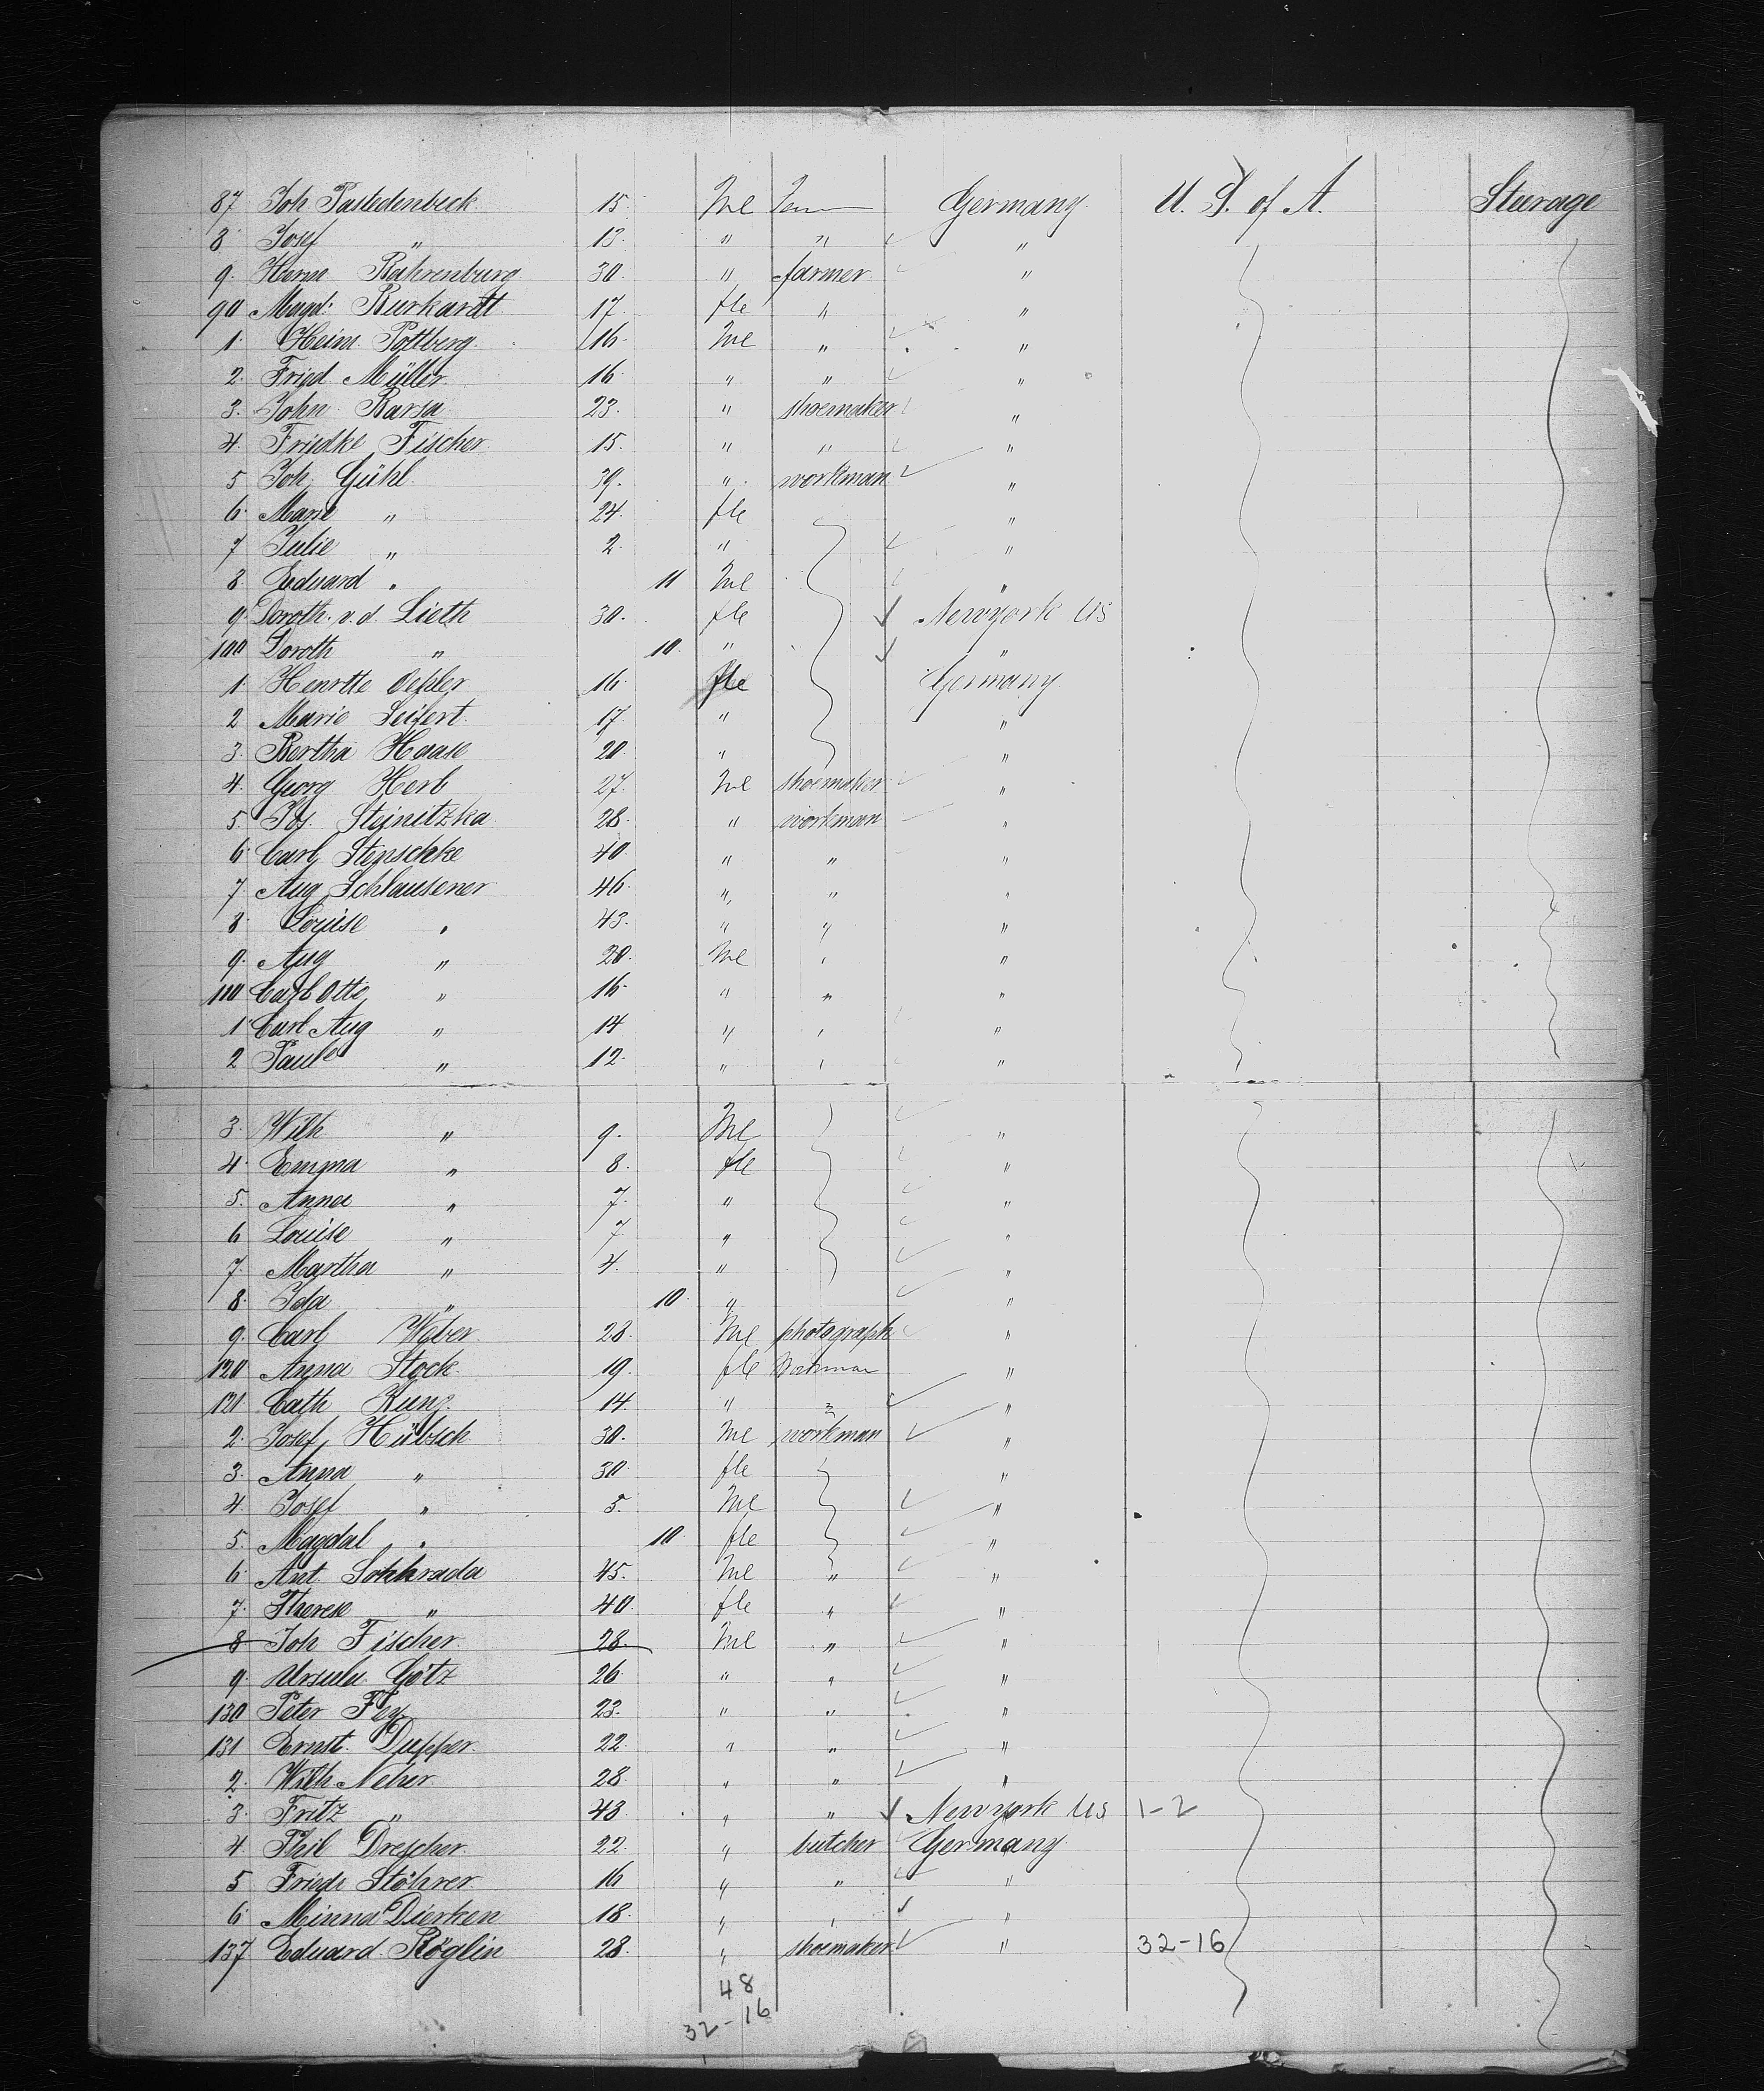 87 Joh Pastedenbeck 15 Ml Germany U. S. of A. Steerage
8 Josef " 13 " " "
9. Herm Bahrenburg 30 " farmer "
90 Magd: Burkardt 17. fle " "
1. Heinr Pottberg. 16 Ml " "
2. Fried Müller 16 " " "
3. John Barsa 23. " shoemaker "
4. Friedke Fischer 15. " " "
5 Joh. Gühl 39. " workman "
6. Marie " 24. fle "
7 Julie " 2. " "
8. Eduard " 11 Ml "
9. Doroth. v. d. Lieth 30. fle Newyork US
100 Doroth " 10 " "
1. Henrtte Oeßler 16. fle Germany
2 Marie Seifert 17 " "
3. Bertha Haase 20 " "
4. Georg Herb 27. Ml shoemaker "
5. Jos. Steinitzka 28. " workman "
6. Carl Stenschke 40 " " "
7. Aug Schlausener 46. " " "
8 Louise " 43. " " "
9. Aug " 20. Ml " "
110 Carl Otto " 16. " " "
1. Carl Aug " 14 " " "
2 Paul " 12. " " "
3. Wilh " 9. Ml "
4. Emma " 8. fle "
5. Anna " 7. " "
6 Louise " 7 " "
7. Martha " 4. " "
8. Ida " 10. " "
9. Carl Weber 28. Ml photograph "
120 Anna Stock 19. fle "
121 Cath Kunz 14. " " "
2. Josef Hübsch 30. Ml workman "
3. Anna " 30 fle "
4. Josef " 5. Ml "
5. Magdal " 10 fle "
6. Ant. 45. Ml " "
7. Therese " 40. fle " "
8 Joh Fischer 28. Ml " "
9 Ursula Götz 26 " " "
130 Peter 23. " " "
131 Ernst Dupper 22 " " "
2. Wilh Neher 28. " " "
3. Fritz " 43 " " Newyork US 1-2
4. Phil Drescher 22. " butcher Germany
5 Friedr Stöhrer 16 " " "
6 Minna Dierken 18. " " "
137 Eduard Röglin 28. " shoemaker " 32-16
48
32-16